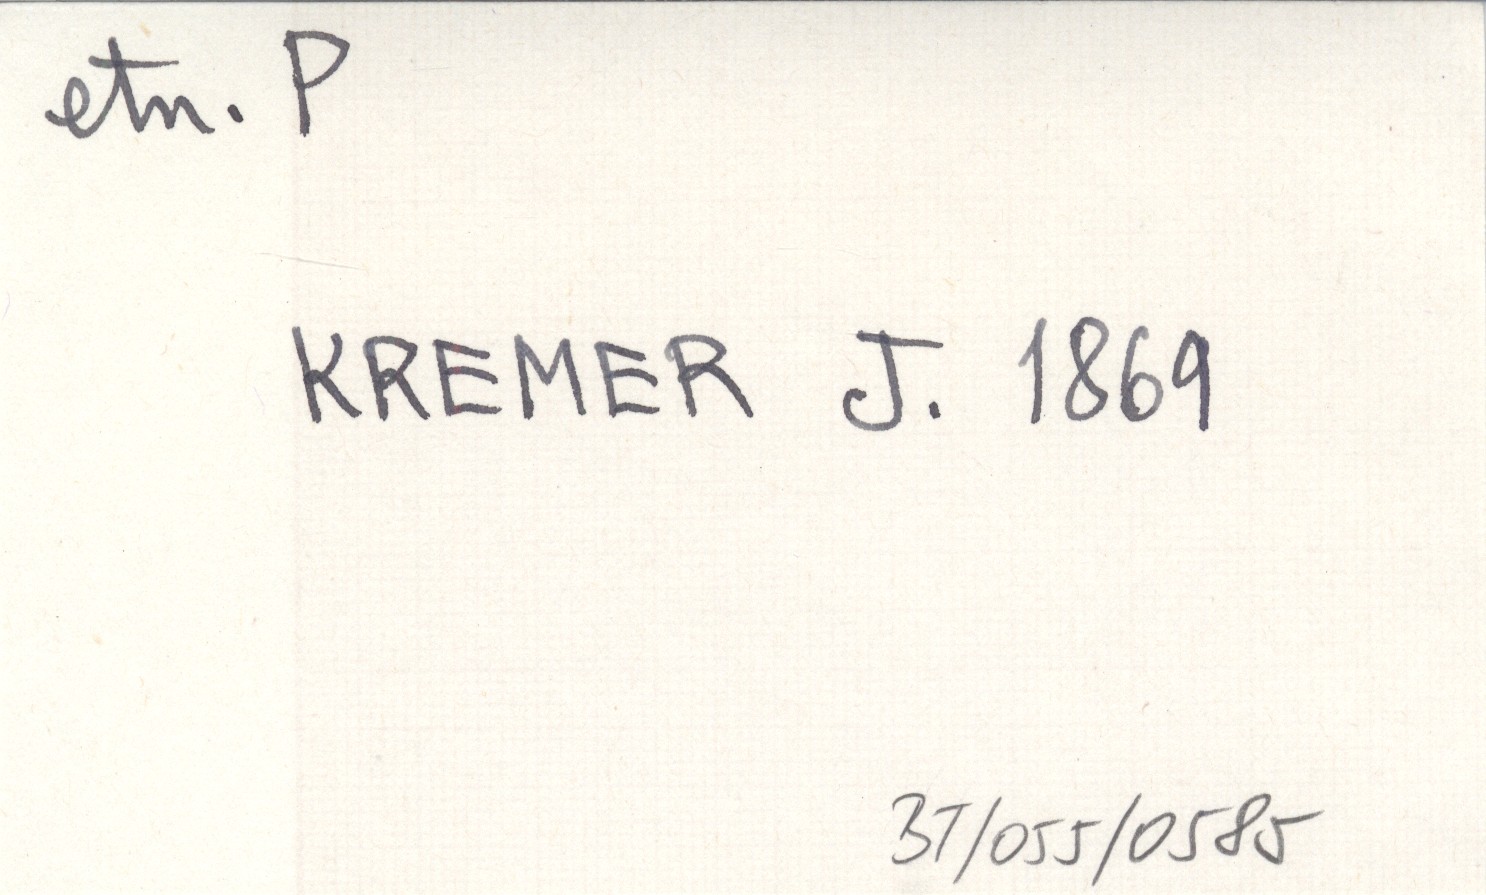 etn. P
KREMER J. 1869
BT/055/0585